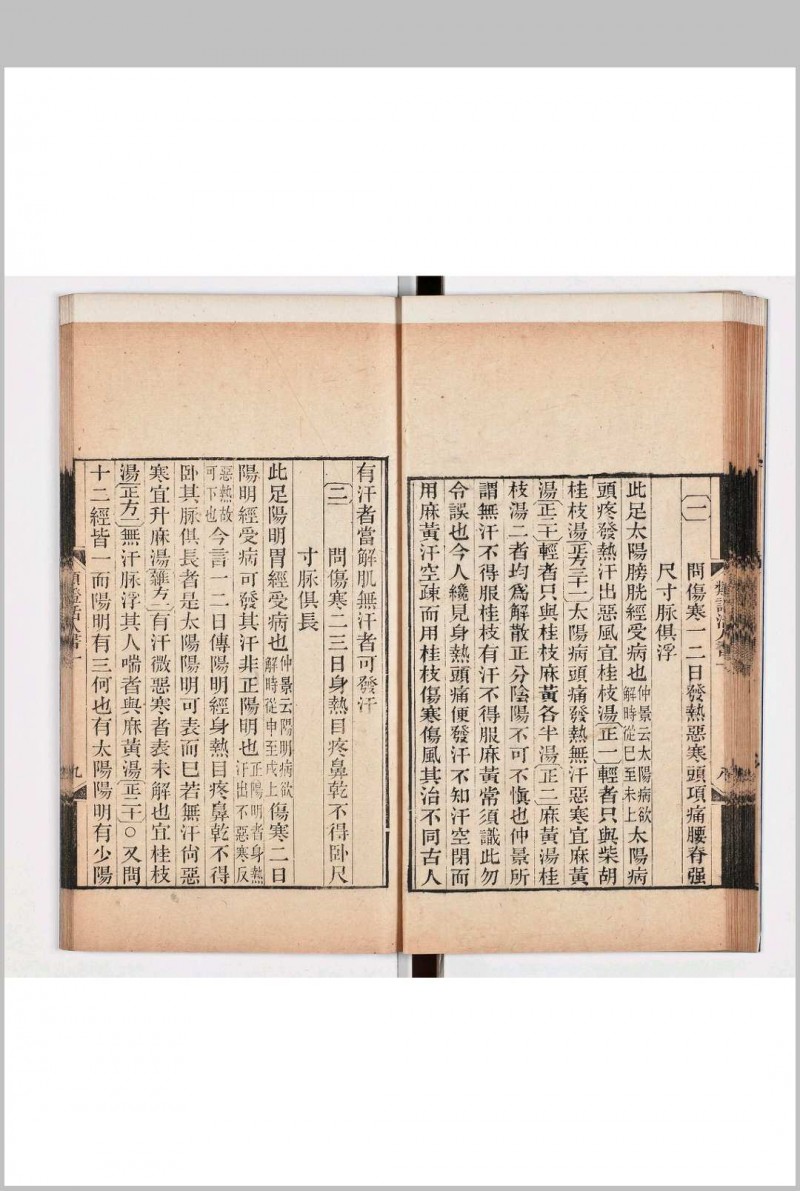 〔一〕 問傷寒一二日發熱惡寒頭項痛腰脊强
尺寸脉俱浮
此足太陽膀胱經受病也仲景云太陽病欲解時從巳至未上太陽病
頭疼發熱汗出惡風宜桂枝湯〔正一〕輕者只與柴胡
桂枝湯〔正方三十二〕太陽病頭痛發熱無汗惡寒宜麻黃
湯〔正二十〕輕者只與桂枝麻黃各半湯〔正二〕麻黃湯桂
枝湯二者均爲解散正分陰陽不可不愼也仲景所
謂無汗不得服桂枝有汗不得服麻黃常須識此勿
令誤也今人纔見身熱頭痛便發汗不知汗空閉而
用麻黃汗空疎而用桂枝傷寒傷風其治不同古人
有汗者當解肌無汗者可發汗
〔二〕 問傷寒二三日身熱目疼鼻乾不得卧尺
寸脉俱長
此足陽明胃經受病也仲景云陽明病欲解時從申至戌上傷寒二日
陽明經受病可發其汗非正陽明也正陽明者身熱汗出不惡寒反
惡熱故可下也今言一二日傳陽明經身熱目疼鼻乾不得
卧其脉俱長者是太陽陽明可表而巳若無汗尙惡
寒宜升麻湯〔雜方一〕有汗微惡寒者表未解也宜桂枝
湯〔正方一〕無汗脉浮其人喘者與麻黃湯〔正二十〕○又問
十二經皆一而陽明有三何也有太陽陽明有少陽
類證活人書一
九